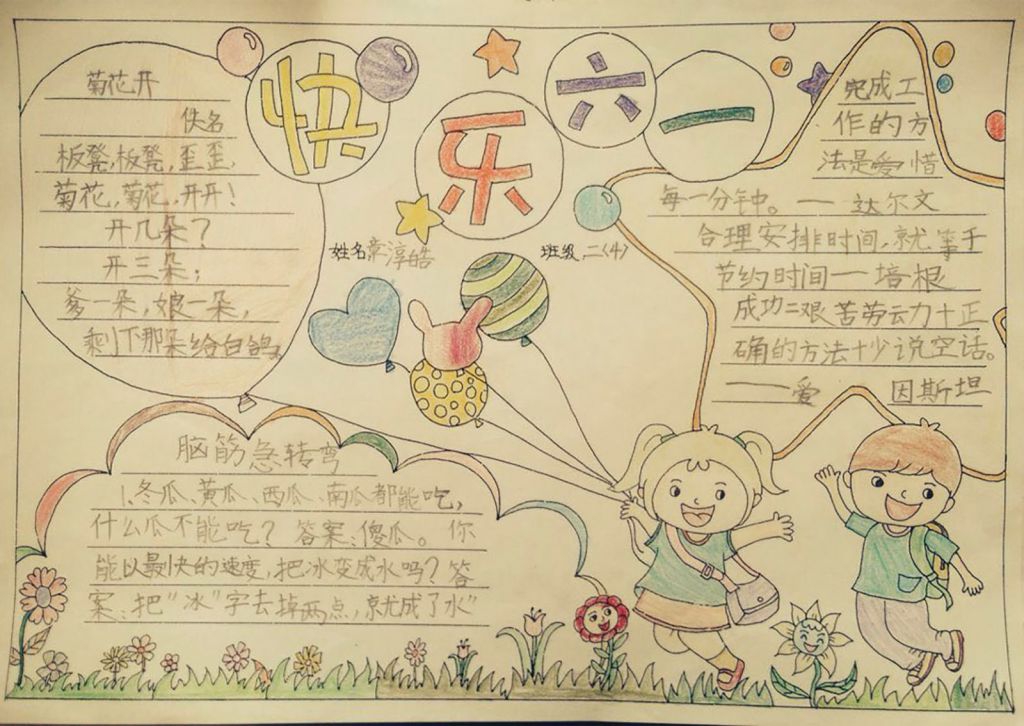 快乐六一
姓名:章淳皓 班级:二(4)
菊花开
佚名
板凳,板凳,歪歪,
菊花,菊花,开开!
开几朵?
开三朵;
爹一朵,娘一朵,
剩下那朵给白鸽。
完成工
作的方
法是爱惜
每一分钟。— 达尔文
合理安排时间,就等于
节约时间——培根
成功=艰苦劳动+正
确的方法+少说空话。
——爱因斯坦
脑筋急转弯
1.冬瓜、黄瓜、西瓜、南瓜都能吃,
什么瓜不能吃?答案:傻瓜。你
能以最快的速度,把冰变成水吗?答
案:把"冰"字去掉两点,就成了水"